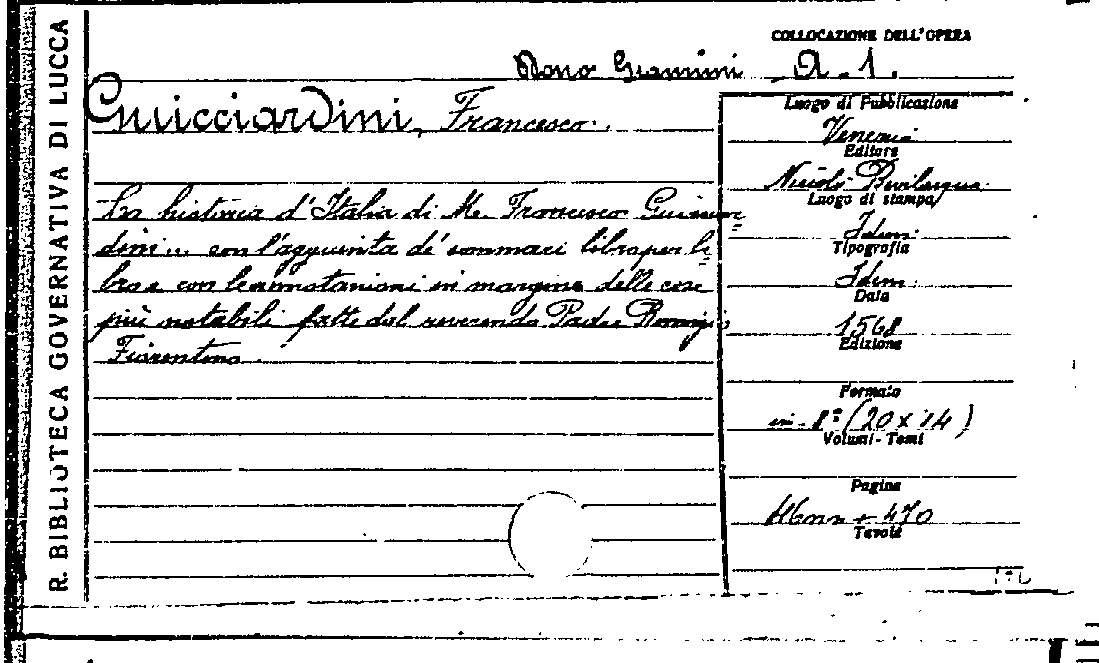 R. BIBLIOTECA GOVERNATIVA DI LUCCA
COLLOCAZIONE DELL'OPERA
Dono Giannini A. 1.
Guicciardini, Francesco.
Luogo di Pubblicazione
Venezia
Editore
Nicolò Bevilacqua
Luogo di stampa
Idem
Tipografia
Idem
Data
1568
Edizione
Formato
in-8° (20 x 14)
Volumi - Tomi
Pagine
+ 470
Tavole
La historia d'Italia di M. Francesco Guicciar=
dini... con l'aggiunta de' sommari libro per li=
bro e con le annotazioni in margine delle cose
più notabili fatte dal reverendo Padre Remigio
Fiorentino.